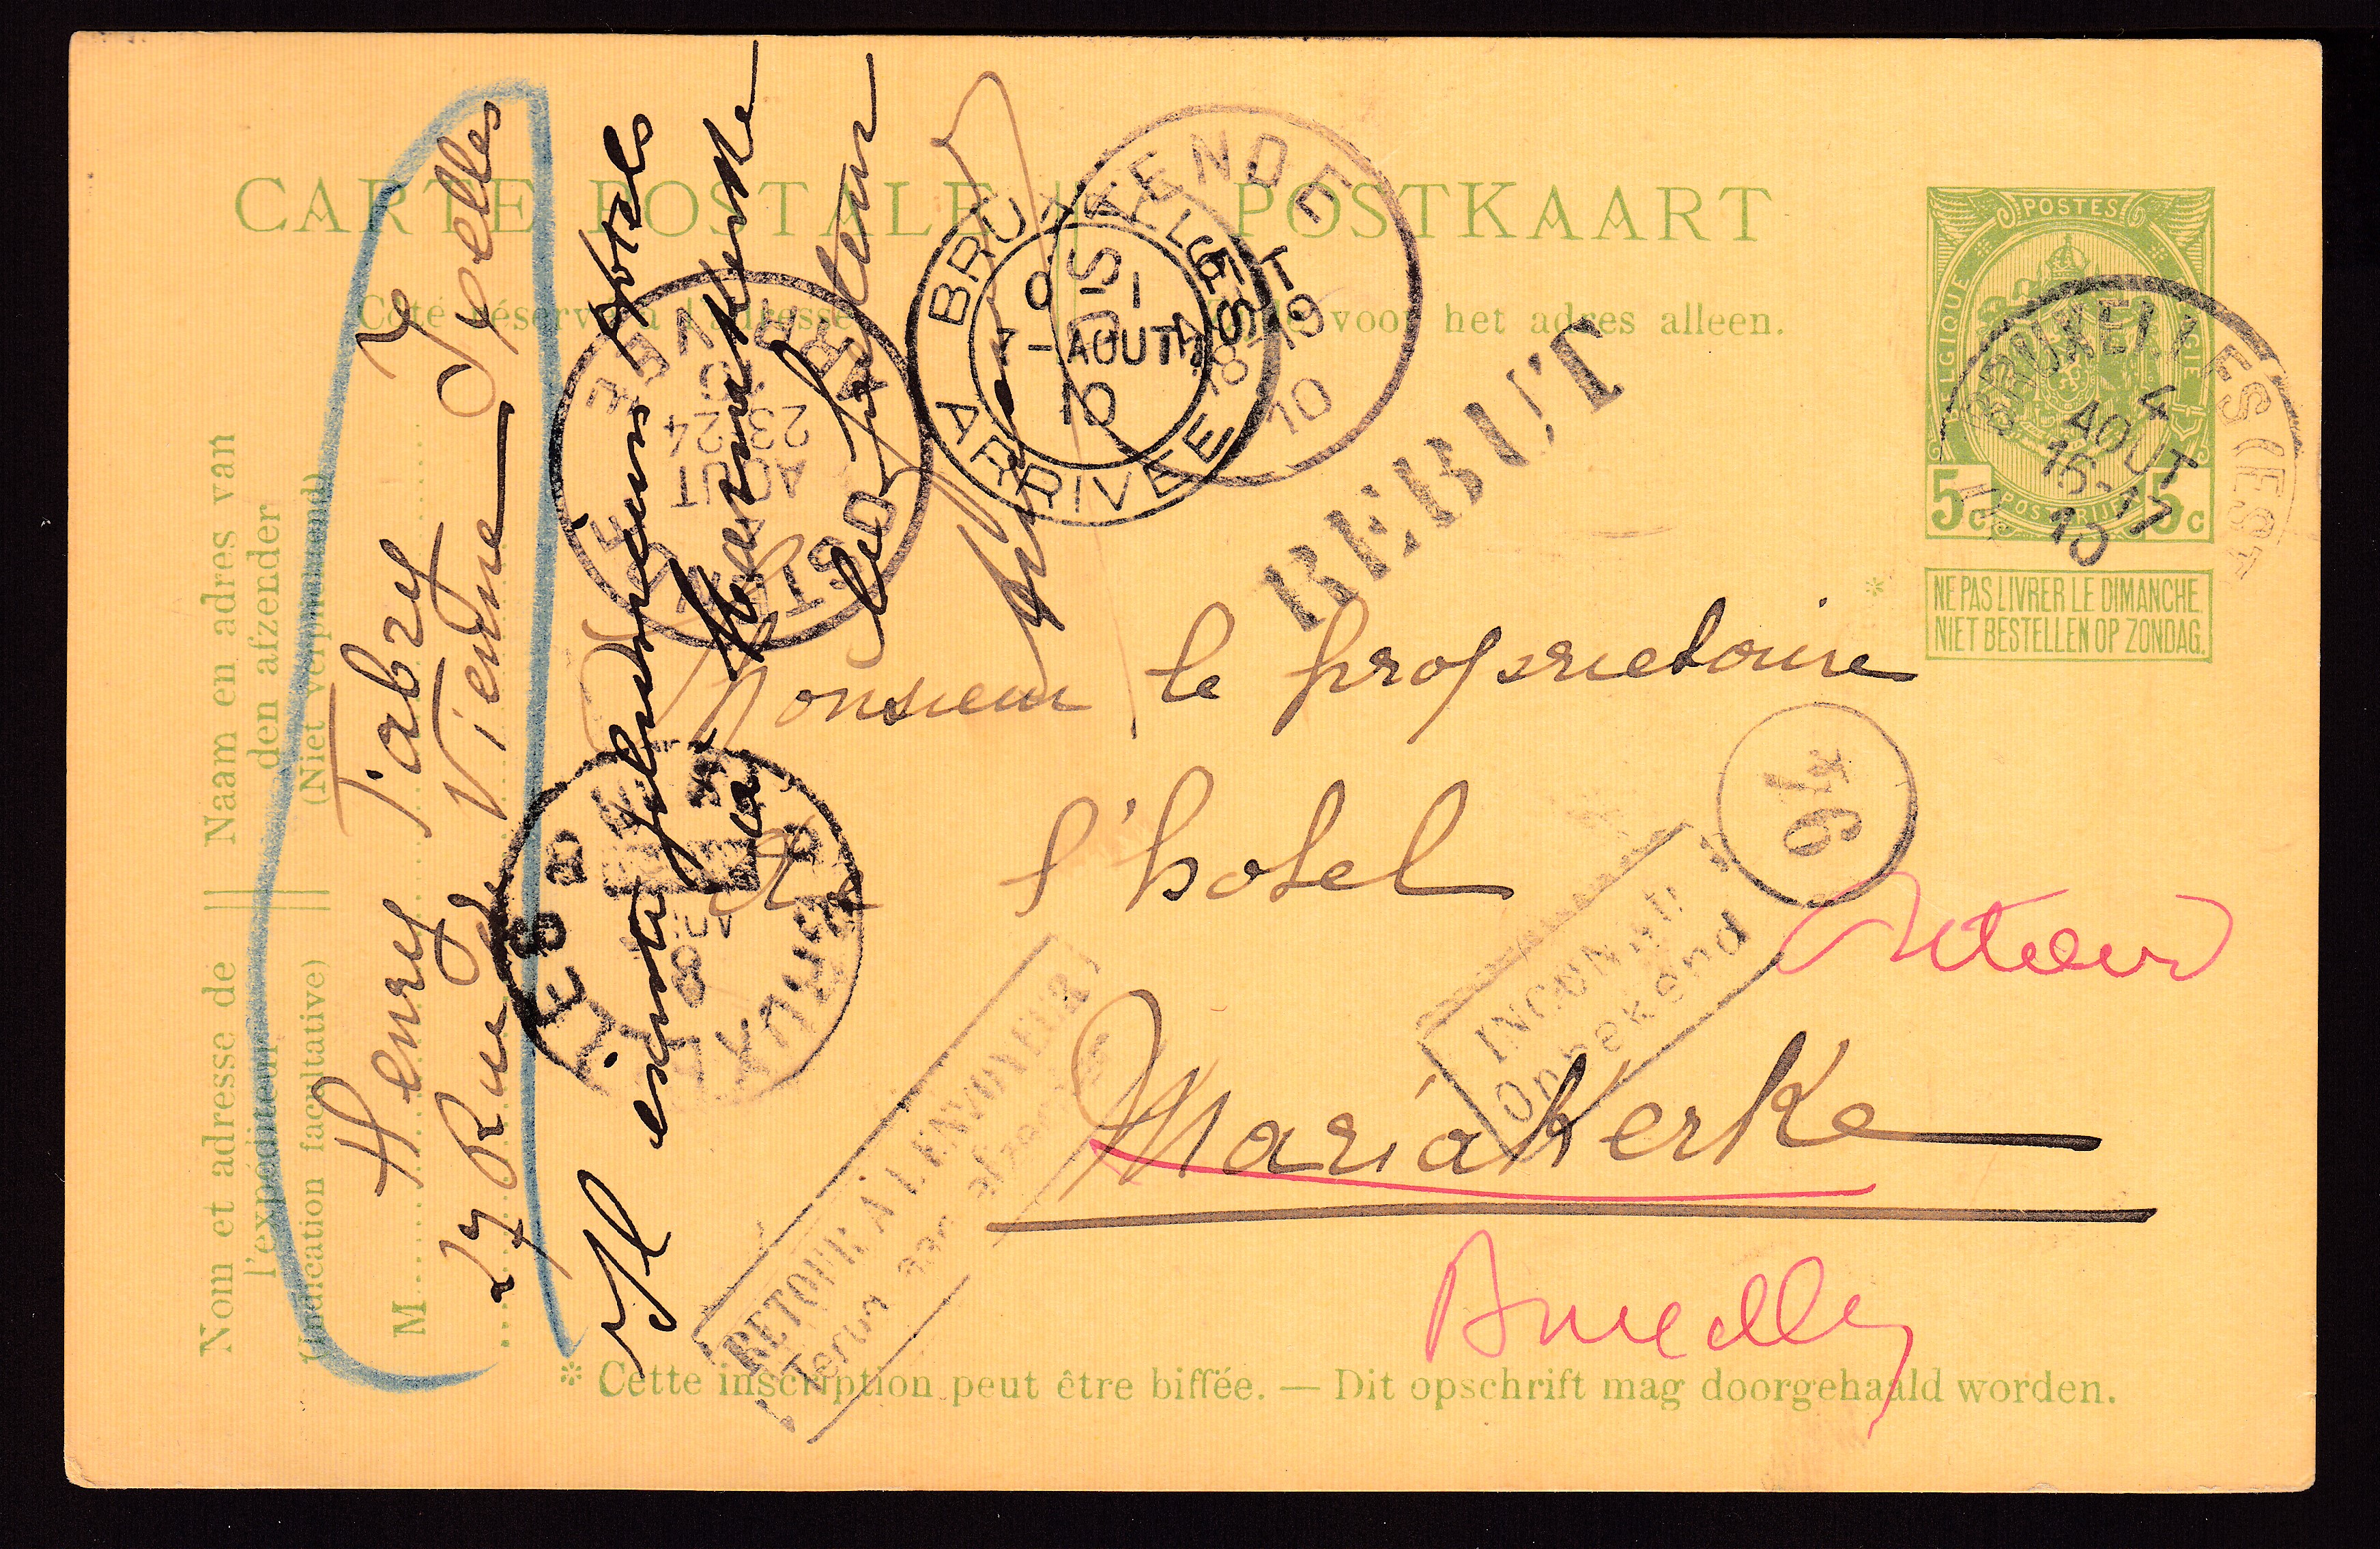 CARTE POSTALE
POSTKAART
Côté réservé à l'adresse.
voor het adres alleen.
POSTES
BELGIQUE
BELGIË
POSTERIJEN
5c 5c
NE PAS LIVRER LE DIMANCHE.
NIET BESTELLEN OP ZONDAG.
*
BRUXELLES (EST
4
AOUT
16-17
10
OOSTENDE
18-19
10
BRUXELLES
ARRIVÉE
AOUT
10
OSTENDE
ARRIVEE
10
23-24
AOUT
REBUT
Monsieur le proprietaire
de l'hotel
Mariakerke
94
INCONNU
Onbekend
retour
Bruxelles
RETOUR A L'ENVOYEUR
Terug aan afzender
Nom et adresse de
l'expéditeur
(Indication facultative)
Naam en adres van
den afzender
(Niet verplichtend)
M
Henry Tabry
27 Rue Vienne Ixelles
Il existe plusieurs hotels
à Mariakerke
* Cette inscription peut être biffée. — Dit opschrift mag doorgehaald worden.